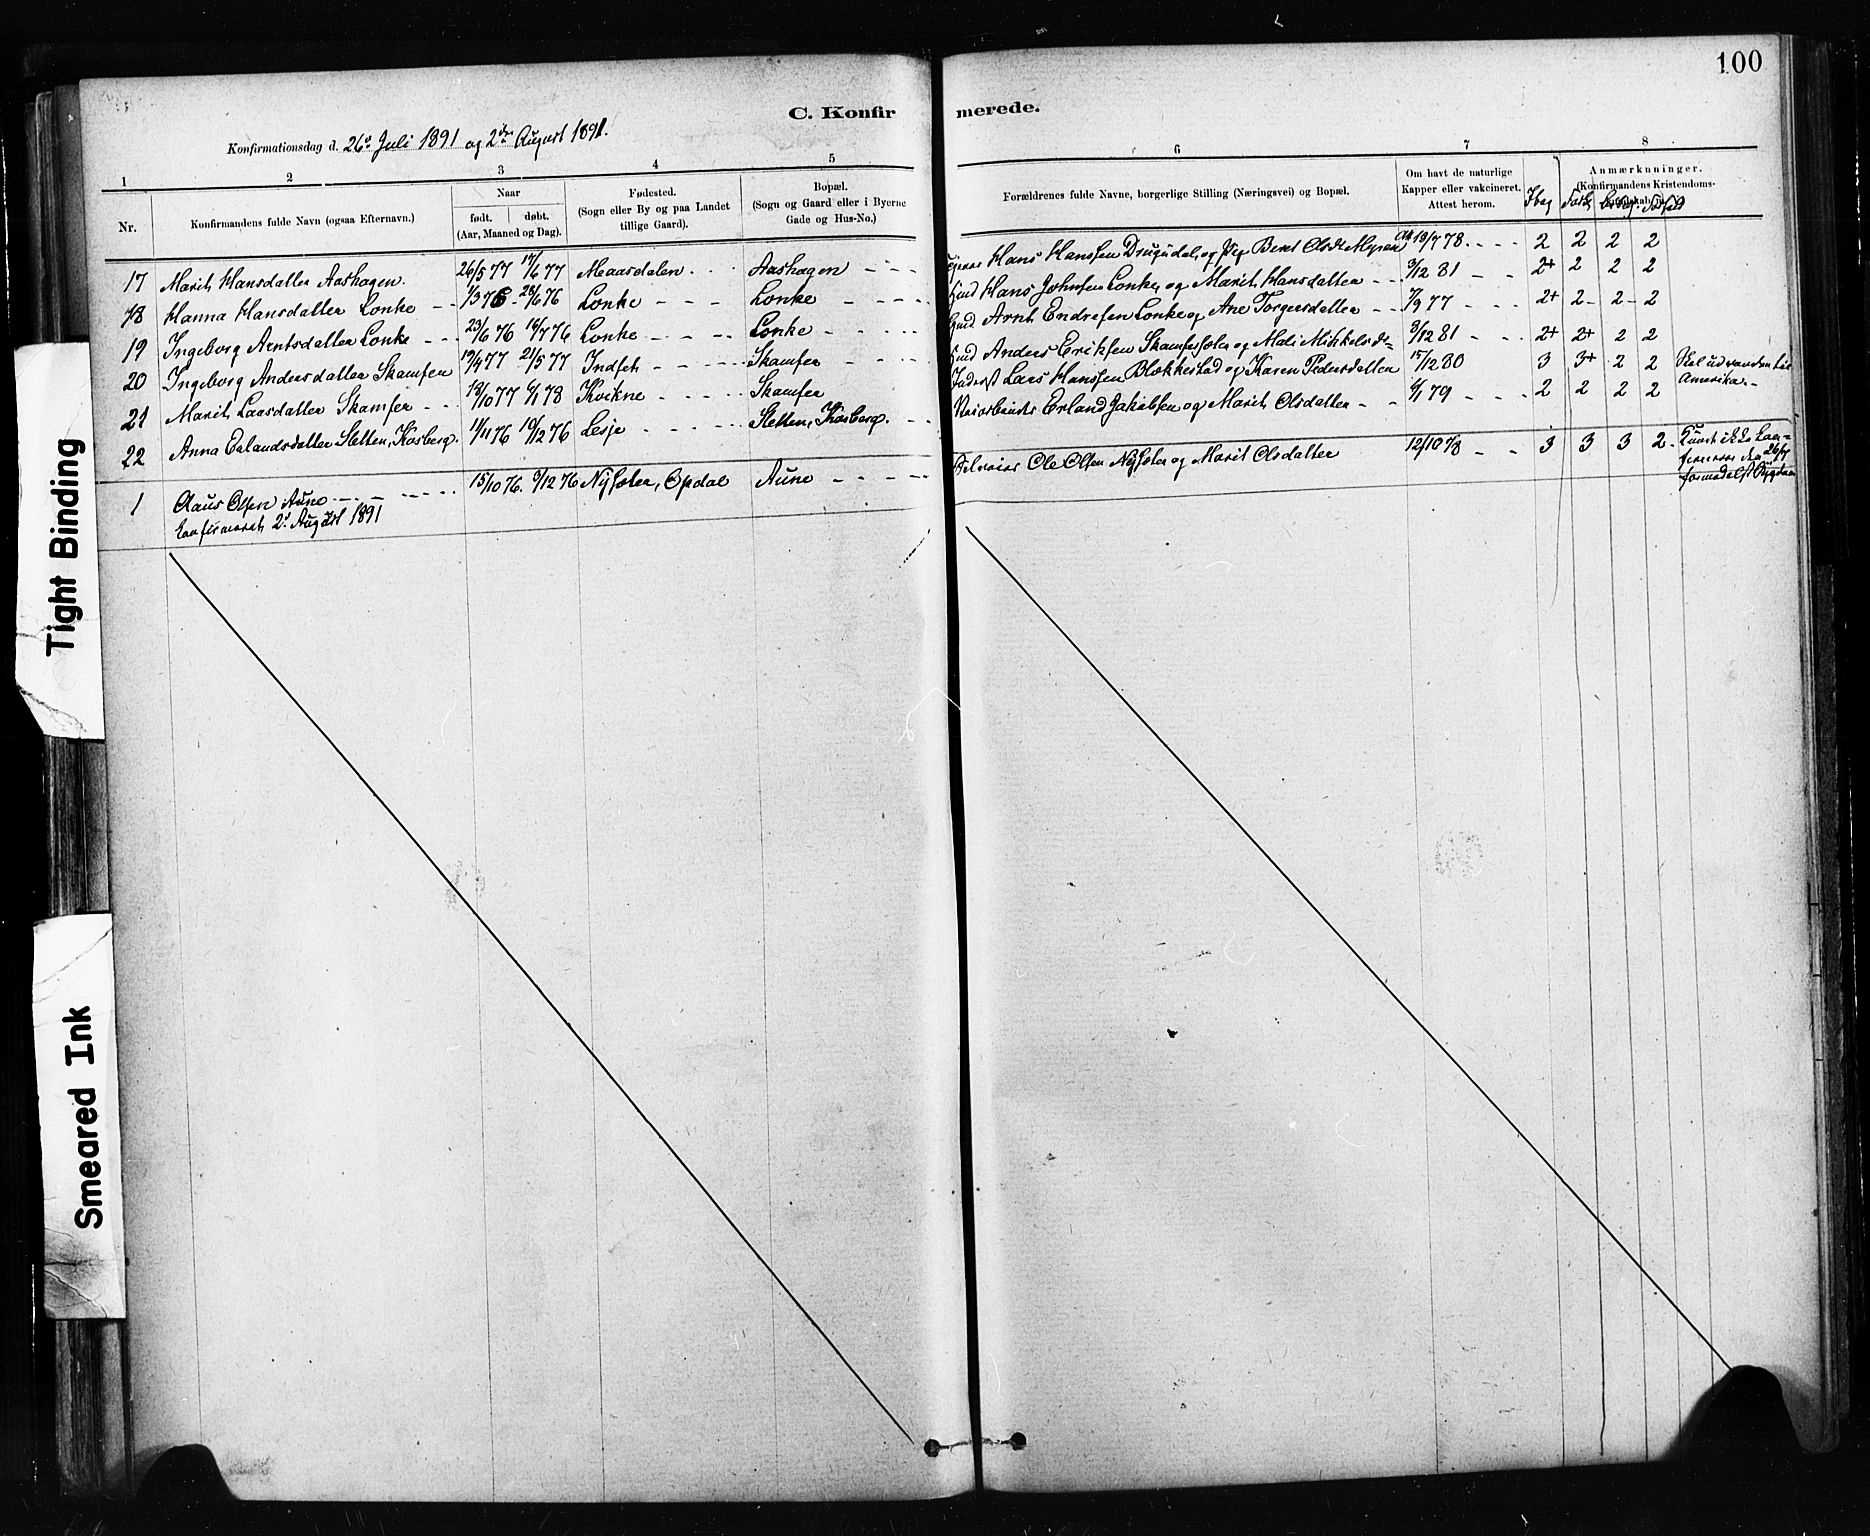 100
C. Konfirmerede.
Konfirmationsdag d. 26de Juli 1891 og 2den August 1891.
1 2 3 4 5 6 7 8
Nr.
Konfirmandens fulde Navn (ogsaa Efternavn.)
Naar
født. døbt.
(Aar, Maaned og Dag).
Fødested.
(Sogn eller By og paa Landet
tillige Gaard).
Bopæl.
(Sogn og Gaard eller i Byerne
Gade og Hus-No.)
Forældrenes fulde Navne, borgerlige Stilling (Næringsvei) og Bopæl.
Om havt de naturlige
Kapper eller vakcineret.
Attest herom.
Anmærkninger.
(Konfirmandens Kristendoms-
17 Marit Hansdatter Aashagen. 26/5 77 17/6 77 Maarsdalen Aashagen Hans Hanssen Drugudal, og Pige Beret Olsdt Myren Att 19/7 78. 2 2 2 2
18 Hanna Hansdatter Lonke 1/3 76 28/6 76 Lonke Lonke Hans Johnsen Lonke, og Marit Hansdatter 3/12 81 2+ 2 2 2
19 Ingeborg Arntsdatter Lonke 23/6 76 16/7 76 Lonke Lonke Arnt Endresen Lonke og Ane Torgersdatter 7/9 77 2+ 2 2 2
20 Ingeborg Andersdatter Skamfer 19/4 77 21/5 77 Indset Skamfer Anders Eriksen Skamfersæter og Mali Mikkelsdt 3/12 81 2+ 2+ 2 2
21 Marit Larsdatter Skamfer 18/10 77 6/1 78 Kvikne Skamfer Inderst Lars Hanssen Blokkestad og Karen Pedersdatter 15/12 80 3 3+ 2 2 Skal udvandre til
Amerika.
22 Anna Erlandsdatter Sletten, Kosberg. 11/11 76 10/12 76 Lesje Sletten, Kosberg. Erland Jakobsen og Marit Olsdatter 6/1 79 2 2 2 2
1 Claus Olsen Aune 15/10 76. 9/12 76 Nysæter, Opdal Aune Ole Olsen Nysæter og Marit Olsdatter 12/10 78 3 3 3 2 Kunde ikke kon-
firmeres den 26/7
formedelst Sygdom
konfirmeret 2den August 1891
Tight Binding
Smeared Ink